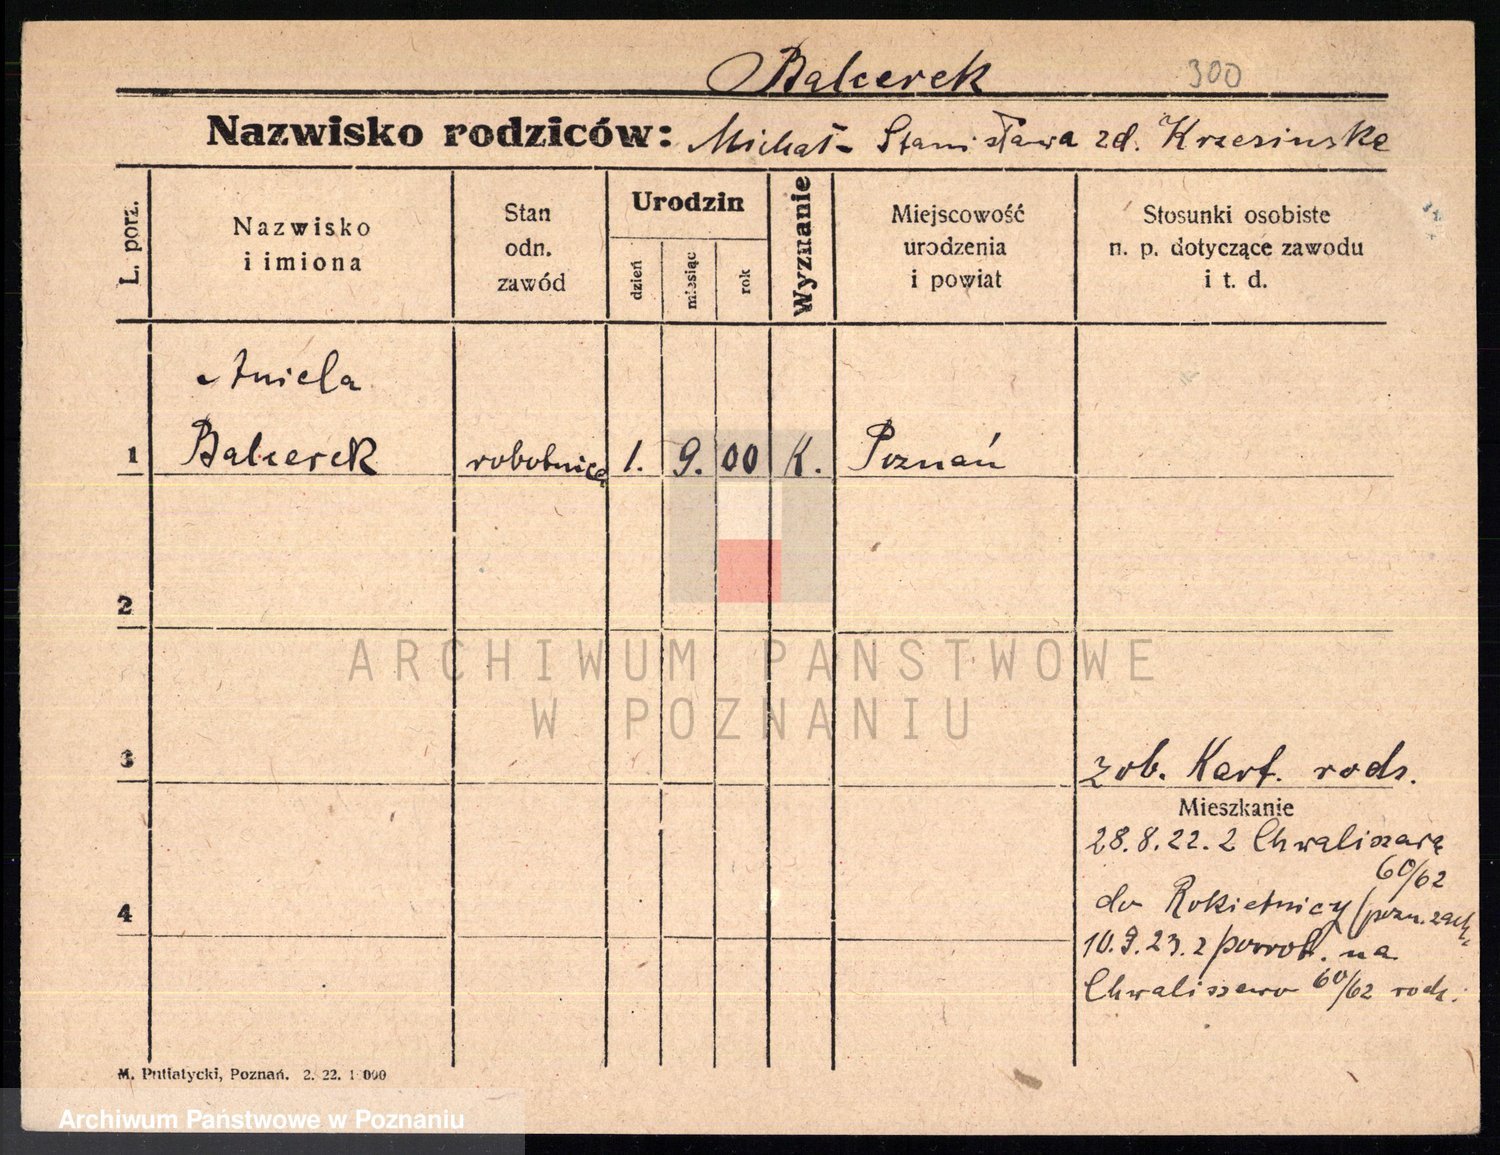 Balcerek 300
Nazwisko rodziców: Michał - Stanisława zd. Krzesinska
L. porz.
Nazwisko
i imiona
Stan
odn.
zawód
Urodzin
dzień
miesiąc
rok
Wyznanie
Miejscowość
urodzenia
i powiat
Stosunki osobiste
n. p. dotyczące zawodu
i t. d.
Aniela
1 Balcerek robotnica 1. 9. 00 K. Poznań
2
ARCHIWUM PAŃSTWOWE
W POZNANIU
3 zob. Kart. rodz.
Mieszkanie
28.8.22. z Chwaliszewa
60/62
4 do Rokietnicy (pozn. zach.
10.9.23. z powrot. na
Chwaliszewo 60/62 rodz.
M. Putiatycki, Poznań. 2. 22. 1 000
Archiwum Państwowe w Poznaniu